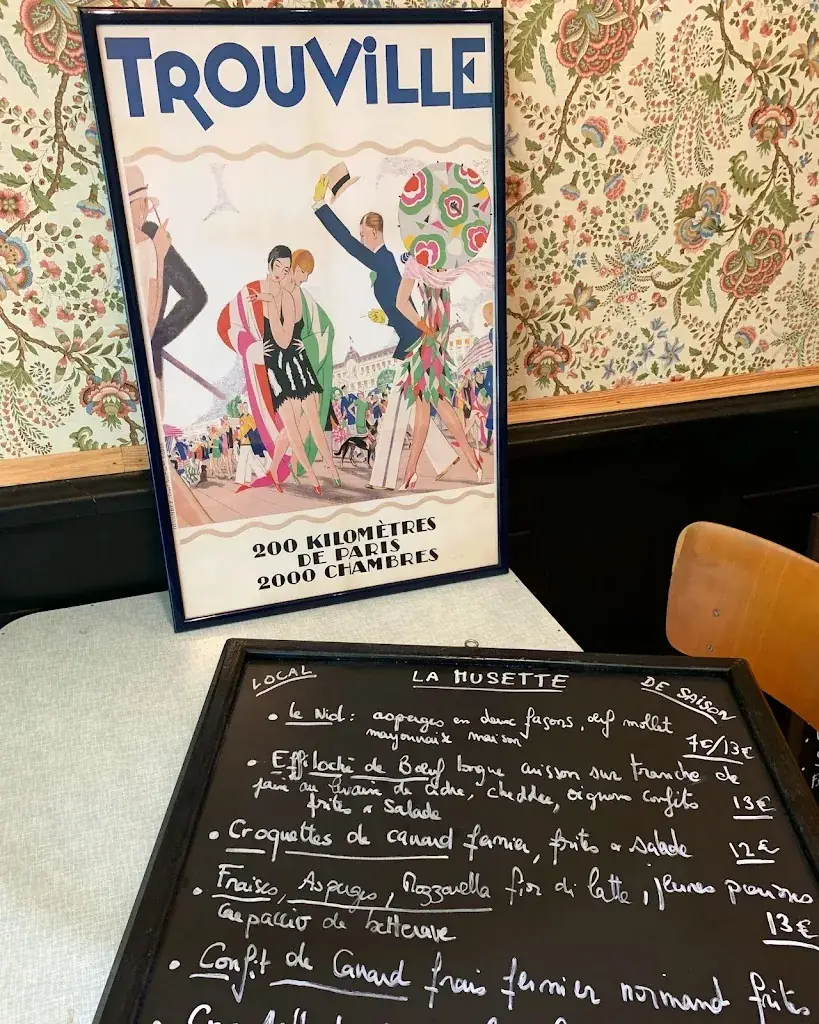 TROUViLLE
200 KILOMÈTRES
DE PARIS
2000 CHAMBRES
LOCAL
LA MUSETTE
DE SAISON
• le Nid : asperges en deux façons, œuf mollet
mayonnaise maison
7€/13€
• Effiloché de Bœuf longue cuisson sur tranche de
pain au levain de cidre, cheddar, oignons confits
frites & salade
13€
• Croquettes de canard fermier, frites & salade
12€
• Fraises, Asperges, Mozzarella fior di latte, jeunes pousses
carpaccio de betterave
13€
• Confit de Canard frais fermier normand frites